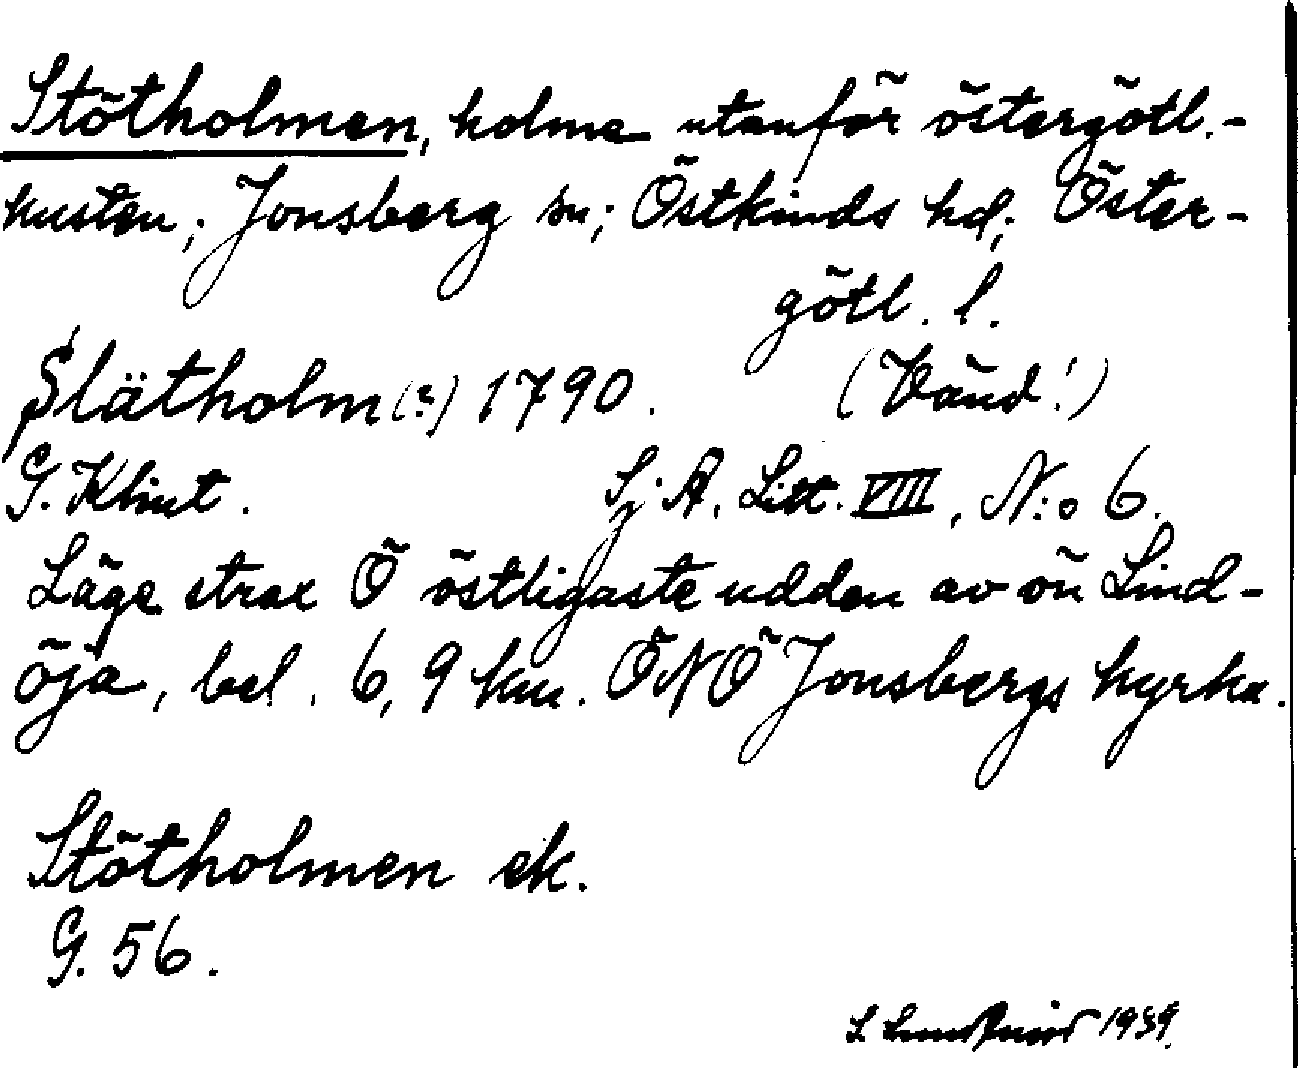 Stötholmen, holme utanför östergötl.-
kusten; Jonsberg sn; Östkinds hd; Öster-
götl. l.
Slätholm(?) 1790. (Vänd!)
G. Klint. Sj. A. Litt. VIII, N:o 6.
Läge strax Ö östligaste udden av ön Lind-
öja, bel. 6,9 km. ÖNÖ Jonsbergs kyrka.
Stötholmen ek.
G. 56.
S 1939.